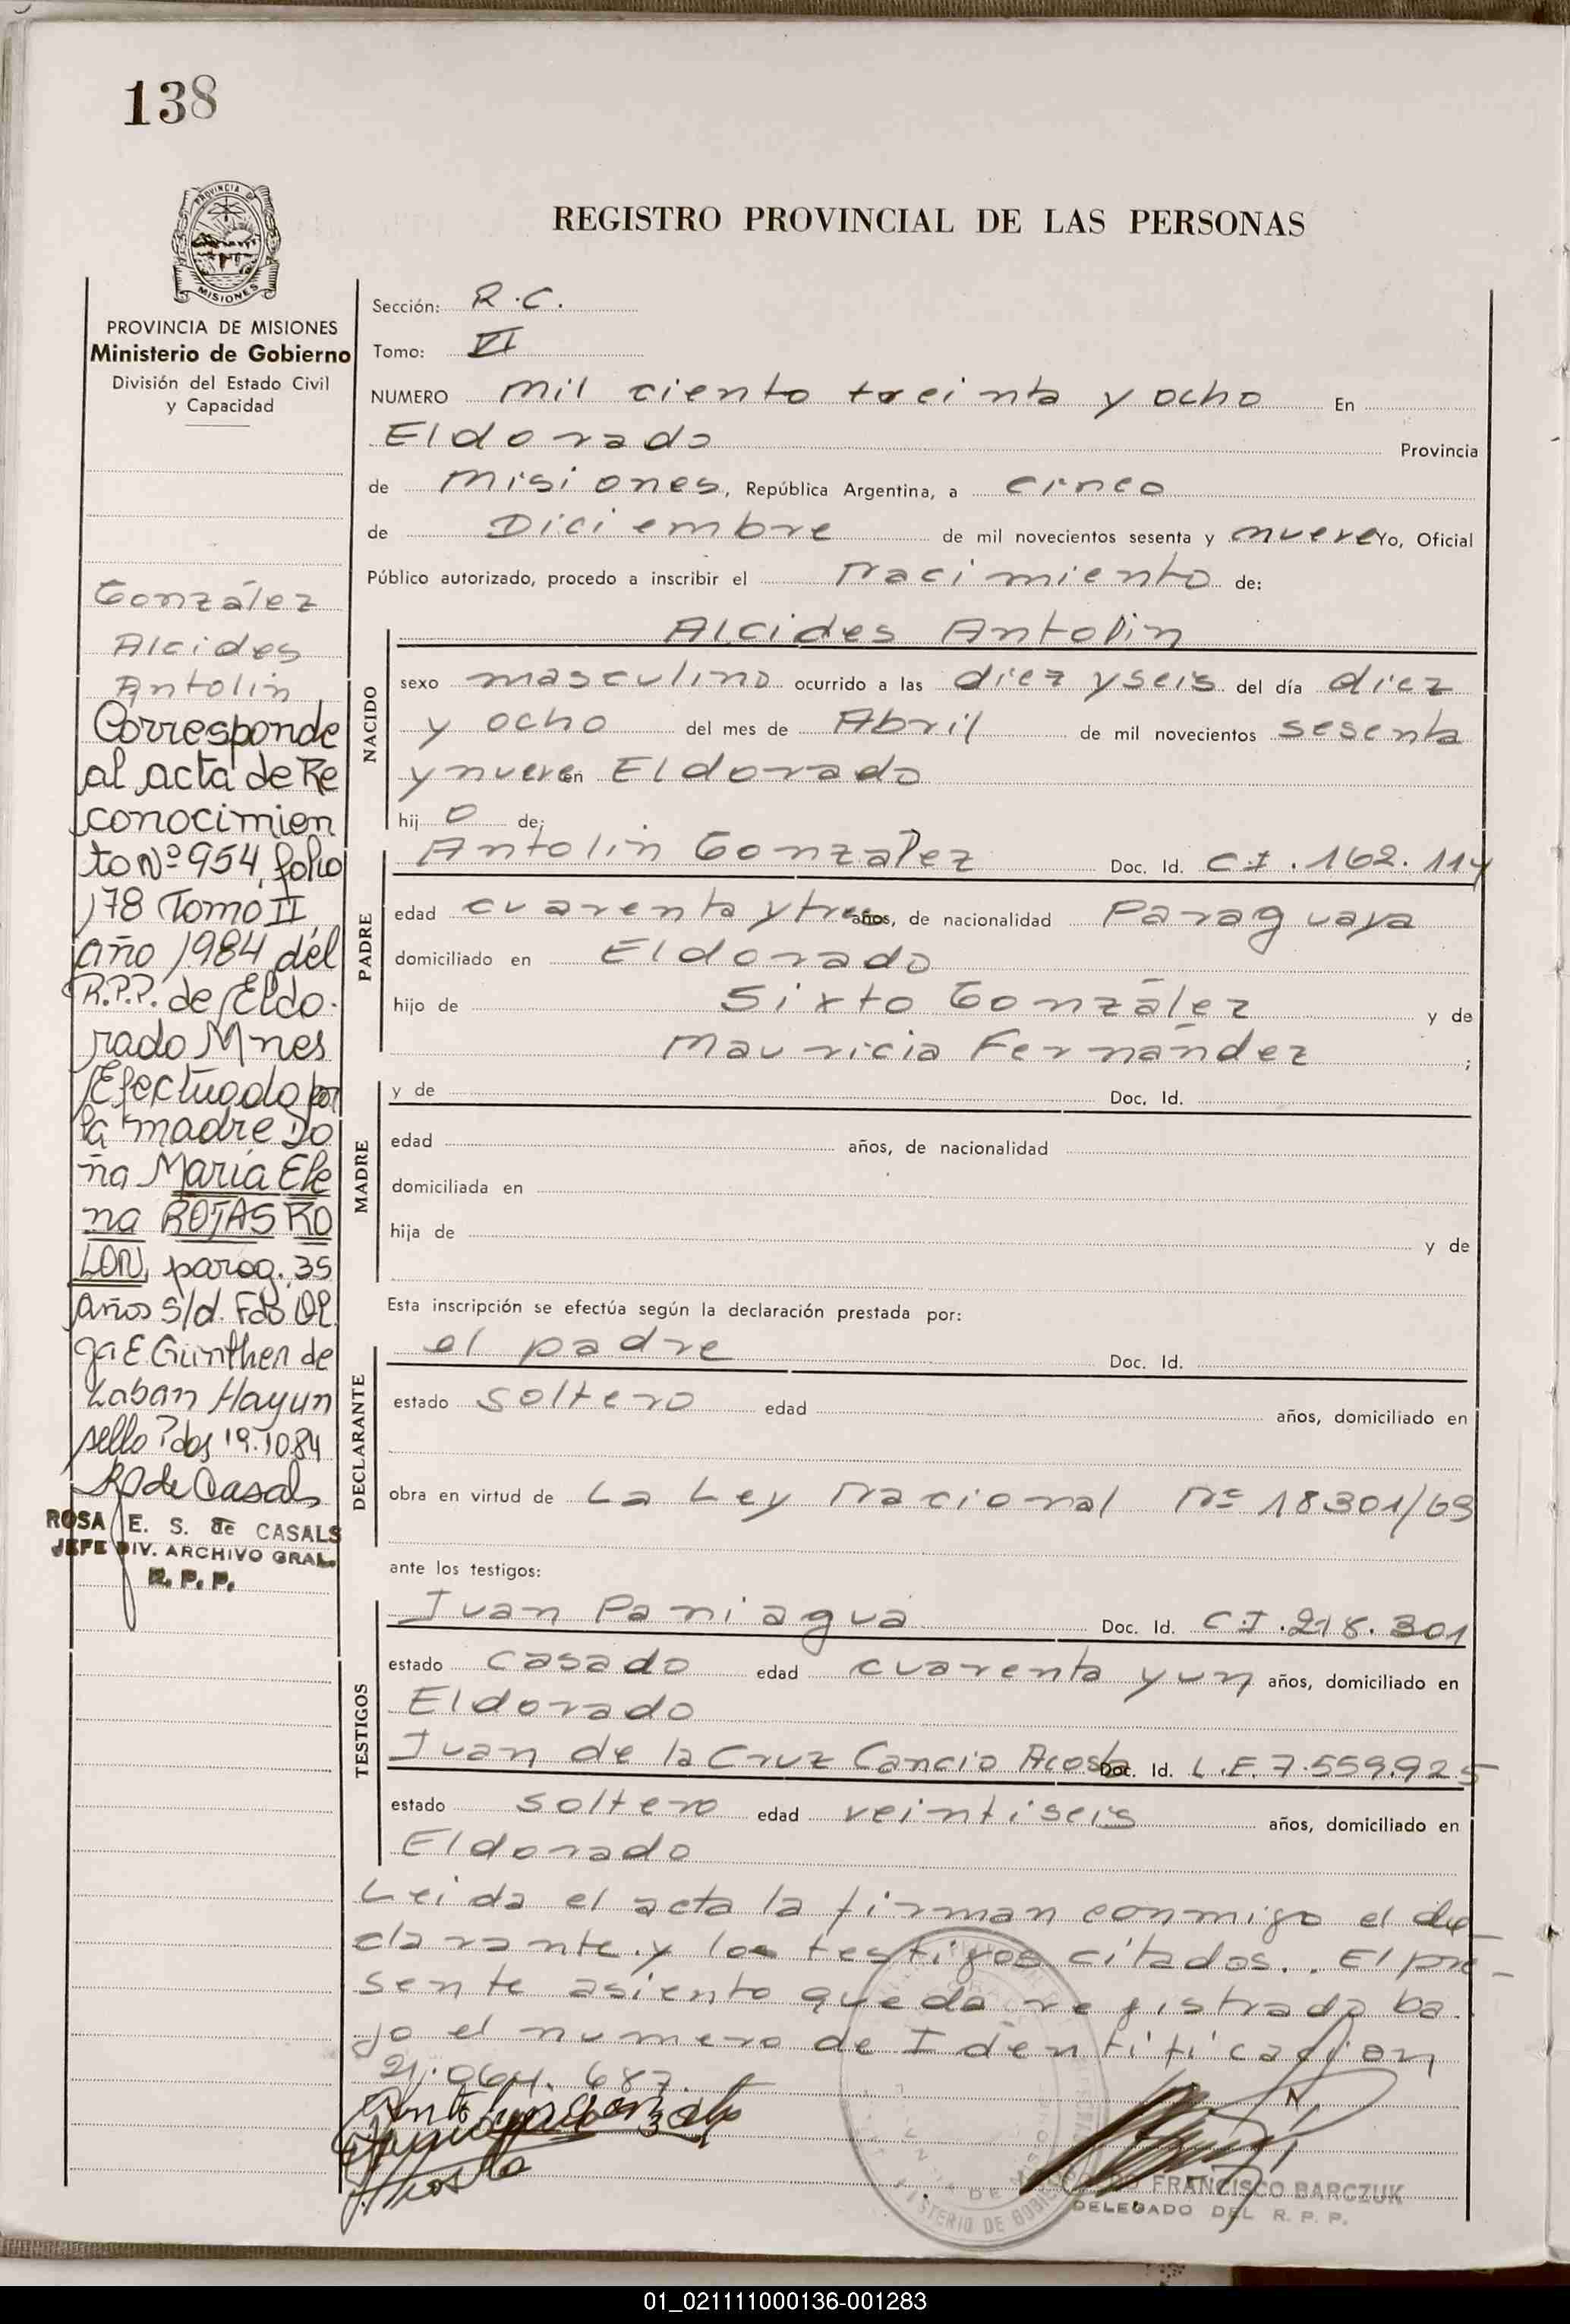 138
PROVINCIA DE
MISIONES
REGISTRO PROVINCIAL DE LAS PERSONAS
PROVINCIA DE MISIONES
Ministerio de Gobierno
División del Estado Civil
y Capacidad
González
Alcides
Antolin
Corresponde
al acta de Re
conocimien
to Nº 954, folio
178 Tomo II,
año 1984 del
R.P.P. de Eldo-
rado Mnes
Efectuado por
la madre Do
ña María Ele
na ROJAS RO
LON, parag. 35
años s/d. Fdo Ol
ga E Günther de
Laban Hayun
sello ? dos 19.10.84
R de Casals
ROSA E. S. de CASALS
JEFE DIV. ARCHIVO GRAL.
R. P. P.
Sección: R.C.
Tomo: VI
NUMERO mil ciento treinta y ocho En
Eldorado Provincia
de Misiones, República Argentina, a cinco
de Diciembre de mil novecientos sesenta y nueve Yo, Oficial
Público autorizado, procedo a inscribir el Nacimiento de:
NACIDO
Alcides Antolin
sexo masculino ocurrido a las diez y seis del día diez
y ocho del mes de Abril de mil novecientos sesenta
y nueve en Eldorado
hij o de:
PADRE
Antolin Gonzalez Doc. Id. C.I. 162.114
edad cuarenta y tres años, de nacionalidad Paraguaya
domiciliado en Eldorado
hijo de Sixto González y de
Mauricia Fernández ;
MADRE
y de Doc. Id.
edad años, de nacionalidad
domiciliada en
hija de y de
Esta inscripción se efectúa según la declaración prestada por:
DECLARANTE
el padre Doc. Id.
estado soltero edad años, domiciliado en
obra en virtud de La Ley Nacional Nº 18301/69
ante los testigos:
TESTIGOS
Juan Paniagua Doc. Id. C.I. 218.301
estado casado edad cuarenta y un años, domiciliado en
Eldorado
Juan de la Cruz Cancio Acosta Doc. Id. L.E. 7.559.925
estado soltero edad veintiseis años, domiciliado en
Eldorado
Leida el acta la firman conmigo el de-
clarante y los testigos citados.. El pre-
sente asiento queda registrado ba-
jo el numero de Identificacion
21.064.687.
Acosta
FRANCISCO BARCZUK
DELEGADO DEL R. P. P.
01_021111000136-001283